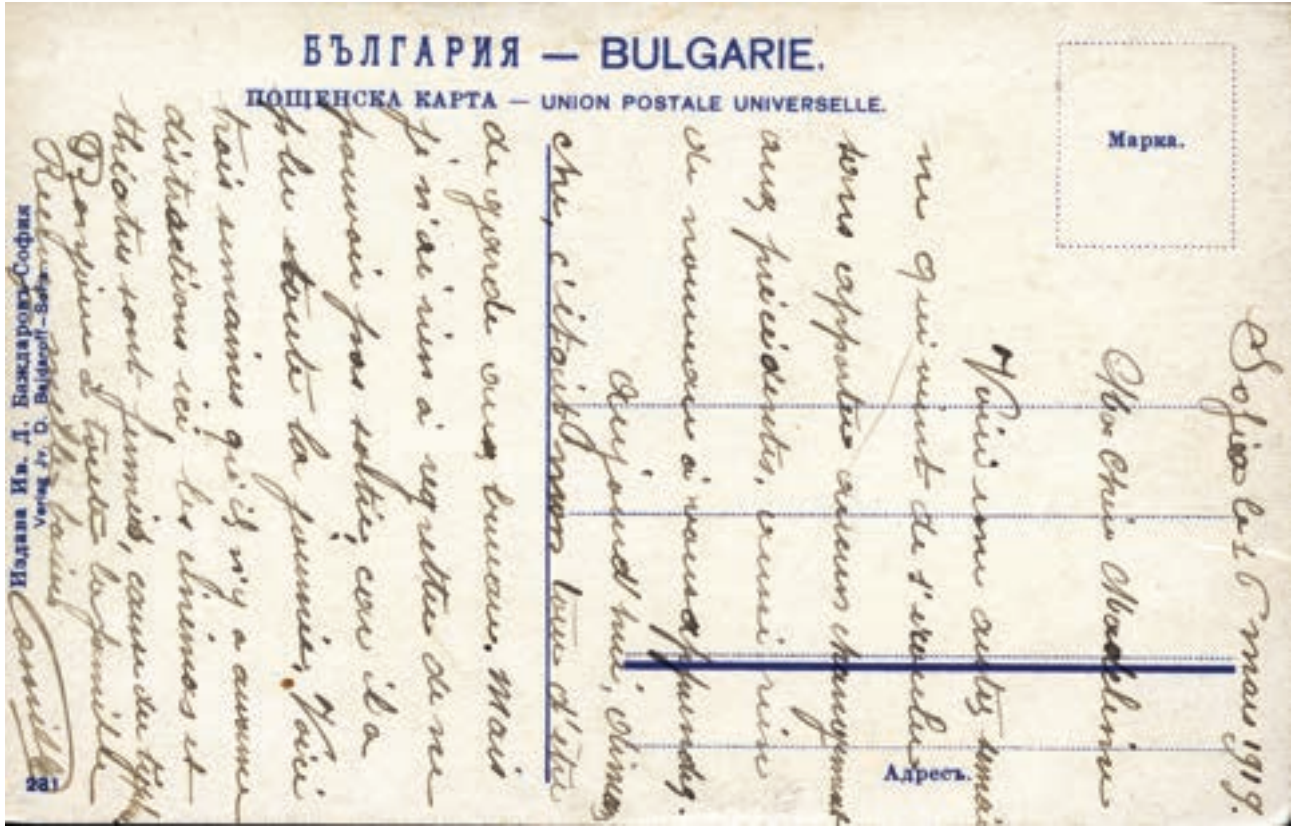 БЪЛГАРИЯ — BULGARIE.
ПОЩЕНСКА КАРТА — UNION POSTALE UNIVERSELLE.
Марка.
Адресъ.
Издава Ив. Д. Баждаровъ-София
Verlag Jv. D. Bajdaroff-Sofia
231
Sofia le 16 mars 1919.
Ma Chère Madeleine
Voici une autre semai
ne qui vient de s'écouler
sans apporter aucun changement
aux précédentes, aussi rien
de nouveau à vous apprendre.
Aujourd'hui, diman
che, c'était mon tour d'être
de garde aux bureau. Mais
je n'ai rien à regretter de ne
pouvoir pas sortir, car il a
plu toute la journée. Voici
trois semaines qu'il n'y a aucune
distractions ici les cinémas et
théâtres sont fermés, cause du typh
Bonjour à toute la famille
Reçois mes baisers
Camille